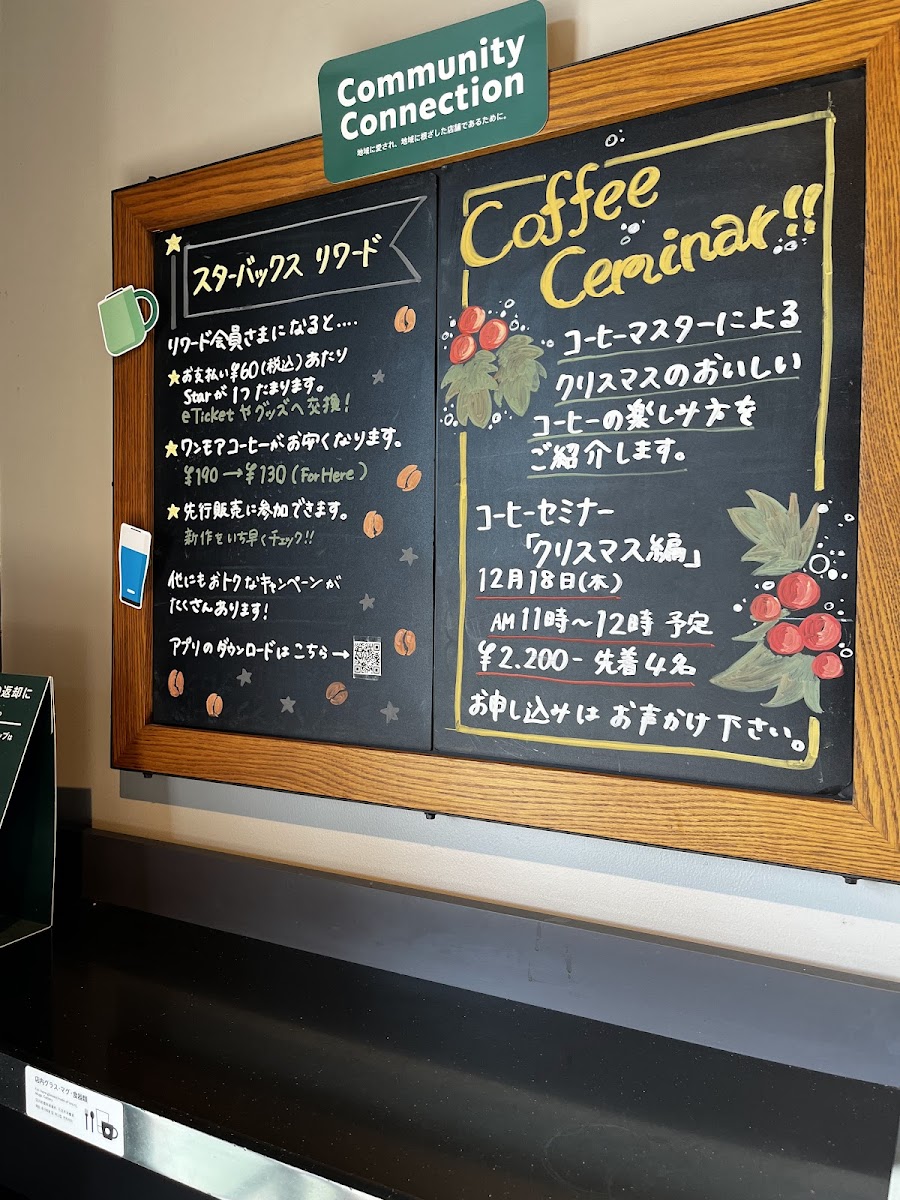 Community
Connection
地域に愛され、地域に根ざした店舗であるために。
スターバックス リワード
リワード会員さまになると....
お支払い¥60(税込)あたり
Starが1つたまります。
eTicketやグッズへ交換!
ワンモアコーヒーがお安くなります。
¥190→¥130(For Here)
先行販売に参加できます。
新作をいち早くチェック!!
他にもおトクなキャンペーンが
たくさんあります!
アプリのダウンロードはこちら→
Coffee
Ceminar!!
コーヒーマスターによる
クリスマスのおいしい
コーヒーの楽しみ方を
ご紹介します。
コーヒーセミナー
「クリスマス編」
12月18日(木)
AM 11時~12時 予定
¥2.200- 先着4名
お申し込みは お声かけ下さい。
返却に
店内グラス・マグ・食器類